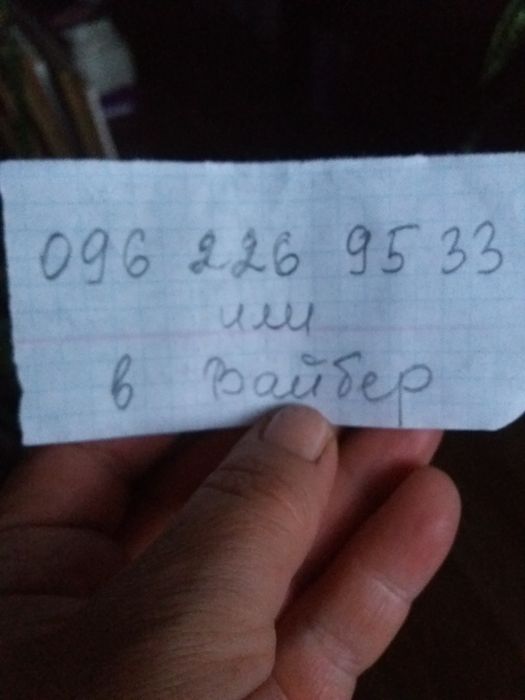 096 226 95 33
или
в Вайбер